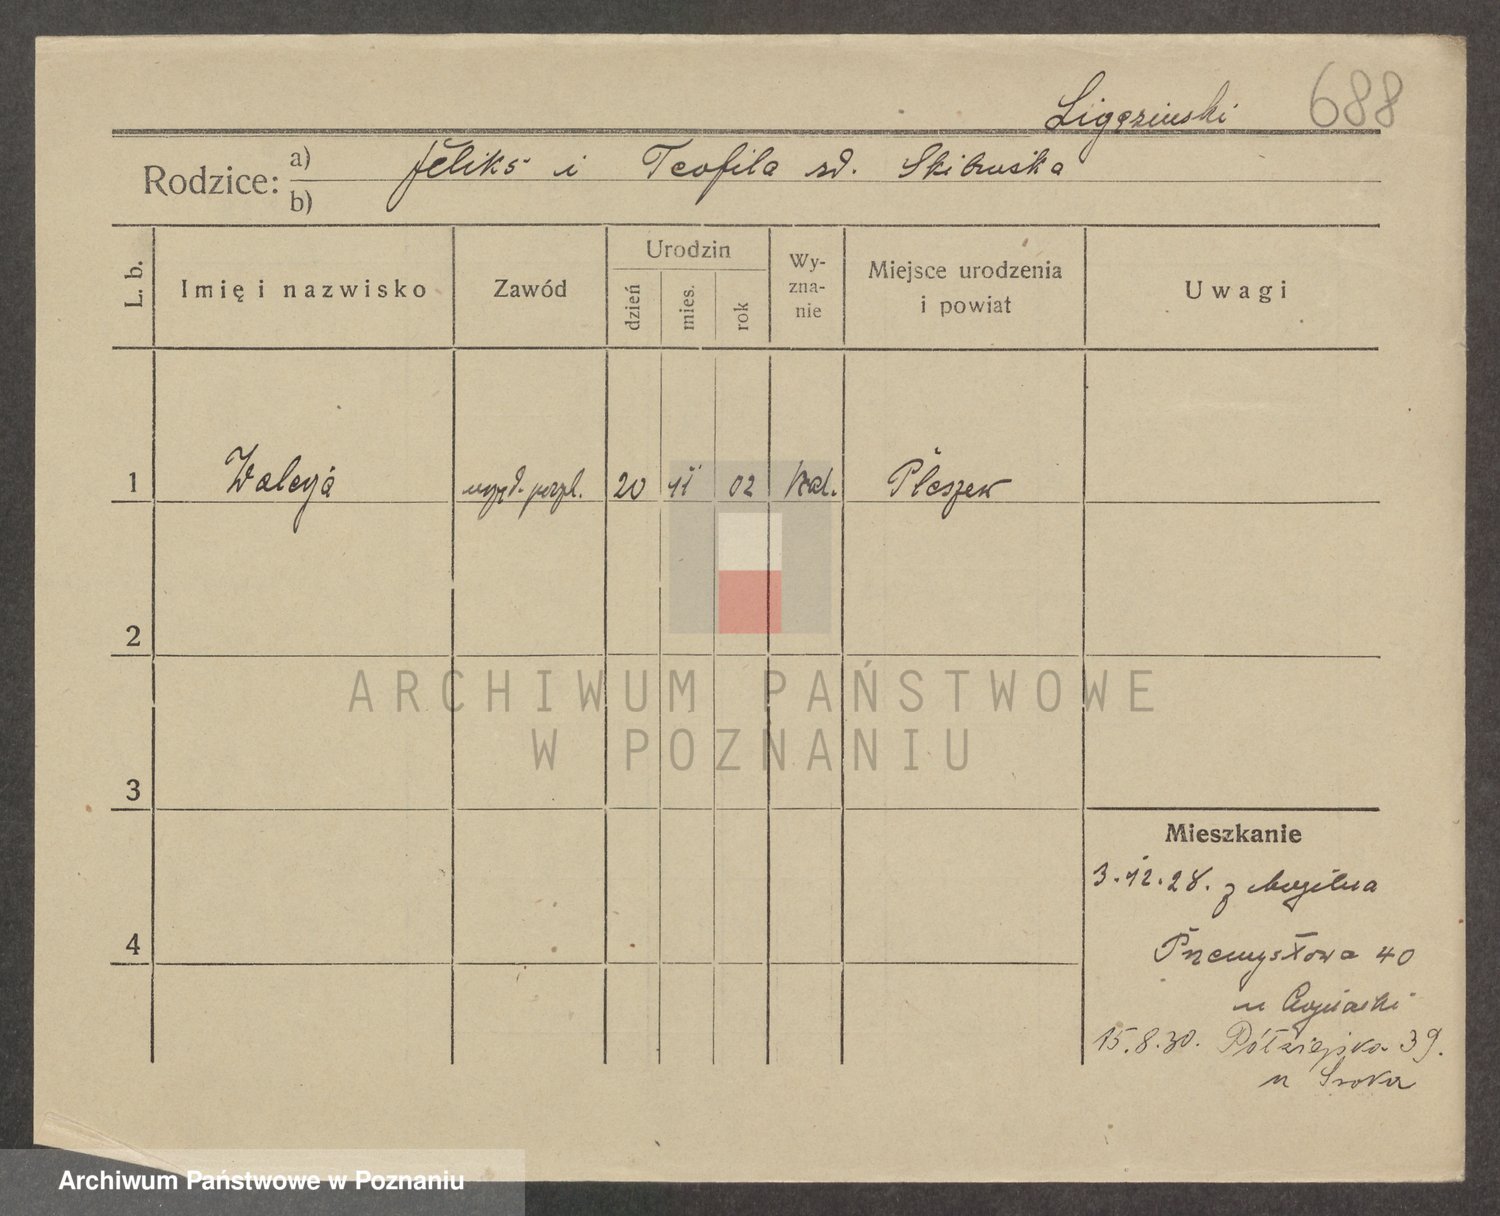 Ligęzinski 688
Rodzice: a) Feliks i Teofila zd. Skibinska
b)
L. b. Imię i nazwisko Zawód Urodzin dzień mies. rok Wy-zna-nie Miejsce urodzenia i powiat Uwagi
1 Waleryja 20 11 02 kat. Pleszew
2
ARCHIWUM PAŃSTWOWE
W POZNANIU
3
Mieszkanie
3.12.28. z Mogilna
4
Przemysłowa 40
u
15.8.30. Półwiejska 39.
u Sroka
Archiwum Państwowe w Poznaniu